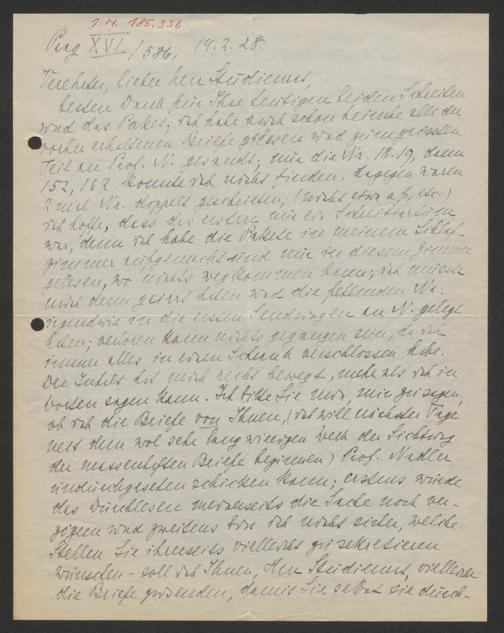 I.N. 185.336
Prag XVI/586, 14.2.28
Verehrter, lieber Herr Studienrat,
besten Dank für Ihre heutigen beiden Schreiben
und das Paket; ich habe auch schon beinahe alle der
vorher erhaltenen Briefe gelesen und zum grossen
Teil an Prof. N. gesandt; nur die Nr. 18, 19, dann
152, 162 konnte ich nicht finden, dagegen waren
2 mal Nr. doppelt geschrieben; (nicht etwa a, b, etc.)
ich hoffe, dass das erstere nur ein Schreibirrtum
war, denn ich habe die Pakete in meinem Schlaf-
zimmer aufgemacht und nur in diesem Zimmer
gelesen, wo nichts wegkommen kann; ich müsste
mich denn geirrt haben und die fehlenden Nr.
irgendwie in die ersten Sendungen an N. gelegt
haben; verloren kann nichts gegangen sein, da ich
immer alles in einen Schrank verschlossen habe.
Der Inhalt hat mich recht bewegt, mehr als ich in
Worten sagen kann. Ich bitte Sie nun, mir zu sagen,
ob ich die Briefe von Ihnen, (ich will nächster Tage
mit dem wol sehr langwierigen Werk der Sichtung
der massenhaften Briefe beginnen) Prof. Nadler
undurchgesehen schicken kann; erstens würde
das Durchlesen meinerseits die Sache noch ver-
zögern und zweitens bin ich nicht sicher, welche
Stellen Sie Ihrerseits vielleicht zu sekretieren
wünschen – soll ich Ihnen, Herr Studienrat, vielleicht
die Briefe zusenden, damit Sie selbst sie durch-